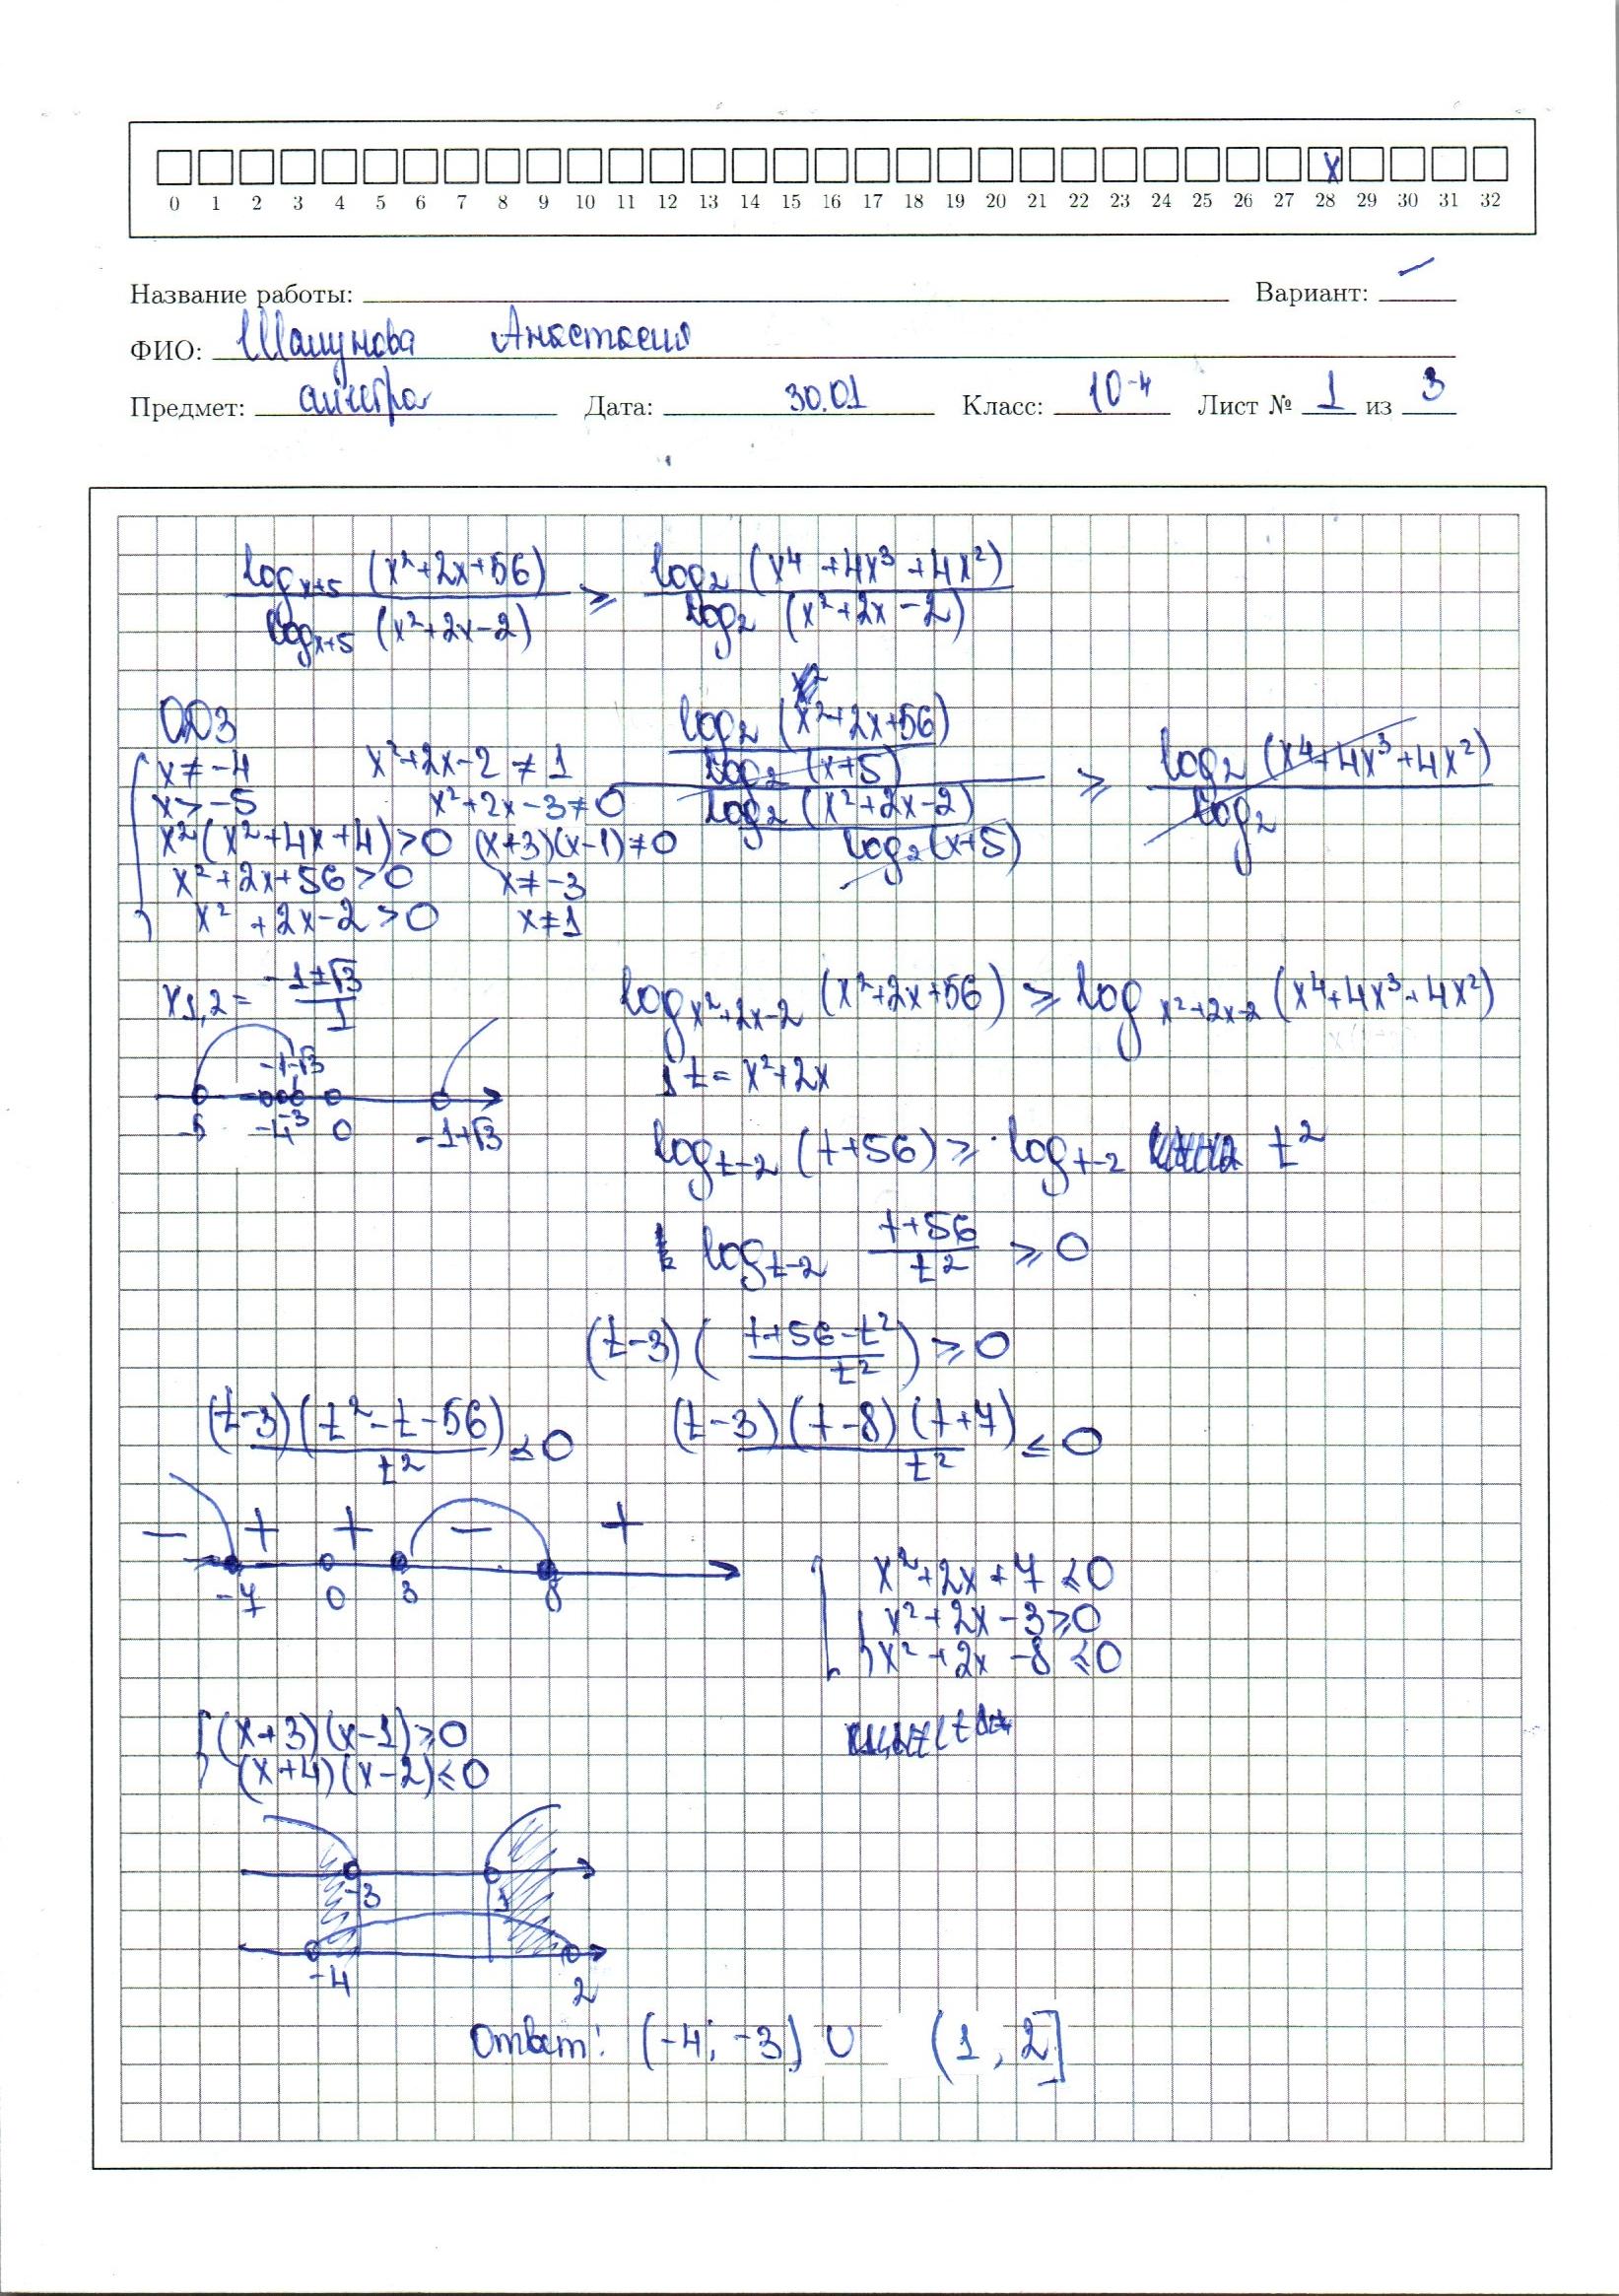 x
0 1 2 3 4 5 6 7 8 9 10 11 12 13 14 15 16 17 18 19 20 21 22 23 24 25 26 27 28 29 30 31 32
Название работы: Вариант: –
ФИО: Анастасия
Предмет: алгебра Дата: 30.01 Класс: 10-4 Лист № 1 из 3
log_{x+5} (x²+2x+56) / log_{x+5} (x²+2x-2) ⩾ log₂ (x⁴+4x³+4x²) / log₂ (x²+2x-2)
ОДЗ
x ≠ -4
x > -5
x²(x²+4x+4) > 0
x²+2x+56 > 0
x²+2x-2 > 0
x²+2x-2 ≠ 1
x²+2x-3 ≠ 0
(x+3)(x-1) ≠ 0
x ≠ -3
x ≠ 1
log₂ (x²+2x+56)
log₂ (x+5) ⩾ log₂ (x⁴+4x³+4x²) / log₂
log₂ (x²+2x-2)
log₂ (x+5)
x₁,₂ = (-1±√3)/1
-1-√3
-5 -4 -3 0 -1+√3
log_{x²+2x-2} (x²+2x+56) ⩾ log_{x²+2x-2} (x⁴+4x³+4x²)
t = x²+2x
log_{t-2} (t+56) ⩾ log_{t-2} t²
log_{t-2} (t+56)/t² ⩾ 0
(t-3) ( (t+56-t²)/t² ) ⩾ 0
(t-3)(t²-t-56)/t² ⩽ 0 (t-3)(t-8)(t+7)/t² ⩽ 0
– + + – +
-7 0 3 8
x²+2x+7 ⩽ 0
x²+2x-3 ⩾ 0
x²+2x-8 ⩽ 0
(x+3)(x-1) ⩾ 0
(x+4)(x-2) ⩽ 0
-3 1
-4 2
Ответ: (-4; -3) ∪ (1, 2]